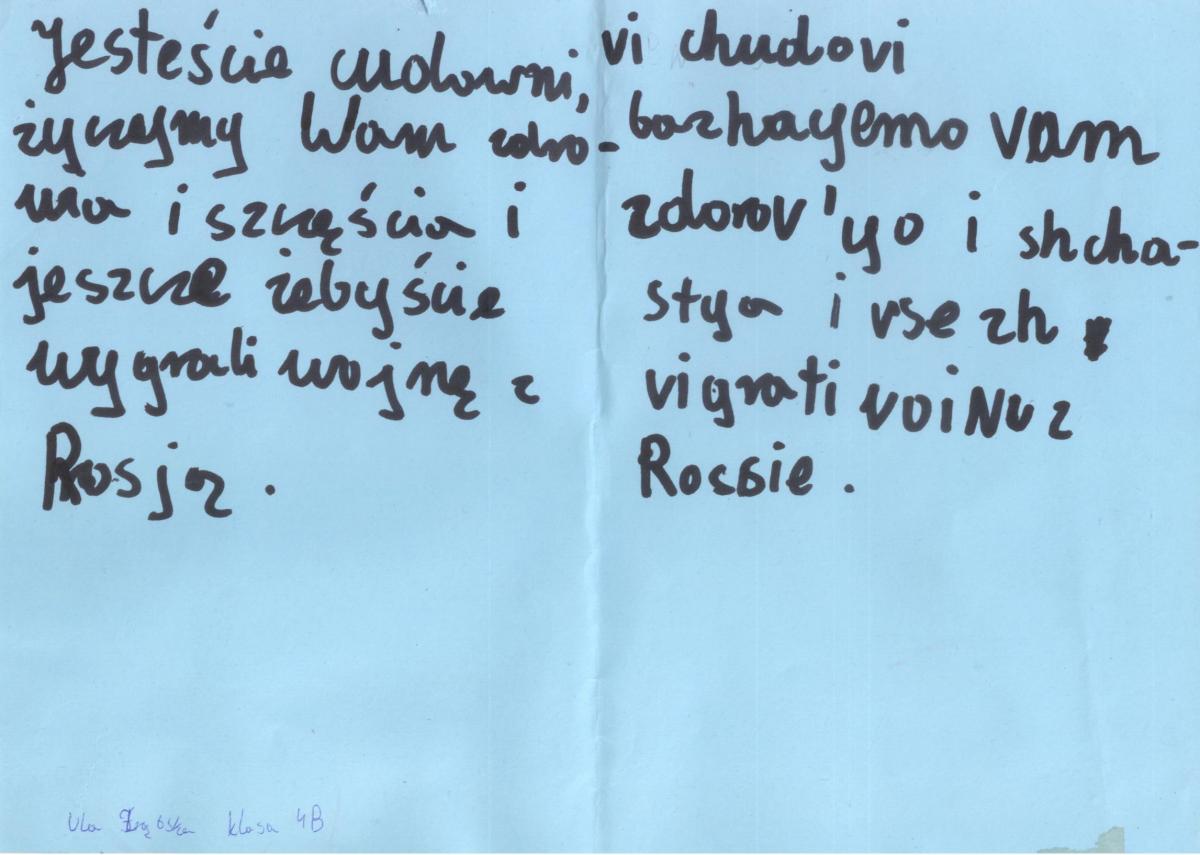 Jesteście cudowni,
życzymy Wam zdro-
wia i szczęścia i
jeszcze żebyście
wygrali wojnę z
Rosją.
vi chudovi
bazhayemo vam
zdorov'yo i shcha-
stya i vse zh
vigrati voinu z
Rossie.
Ula klasa 4B